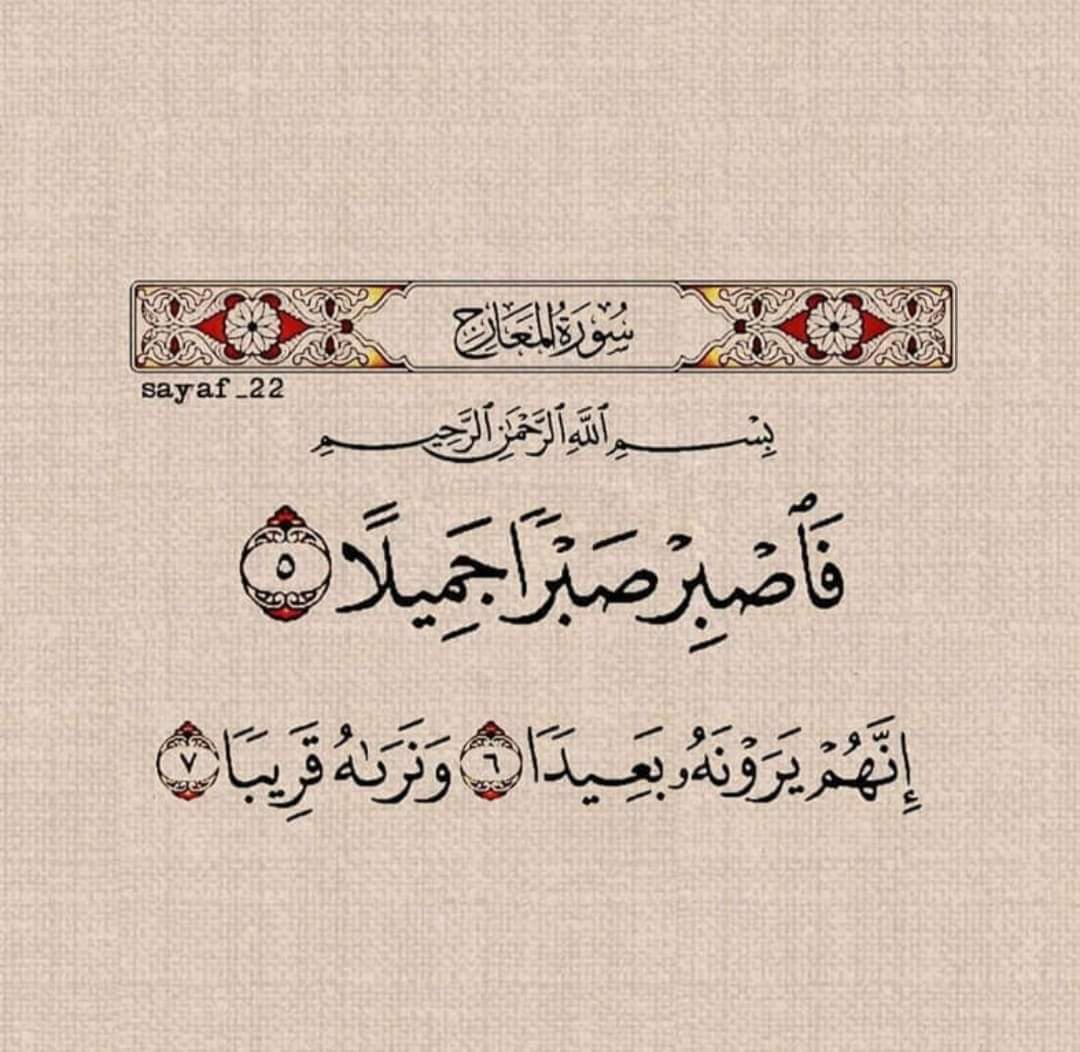 سُورَةُ المَعَارِجِ
sayaf_22
بِسْمِ ٱللَّهِ ٱلرَّحْمَٰنِ ٱلرَّحِيمِ
فَٱصْبِرْ صَبْرًا جَمِيلًا ٥
إِنَّهُمْ يَرَوْنَهُۥ بَعِيدًا ٦ وَنَرَىٰهُ قَرِيبًا ٧